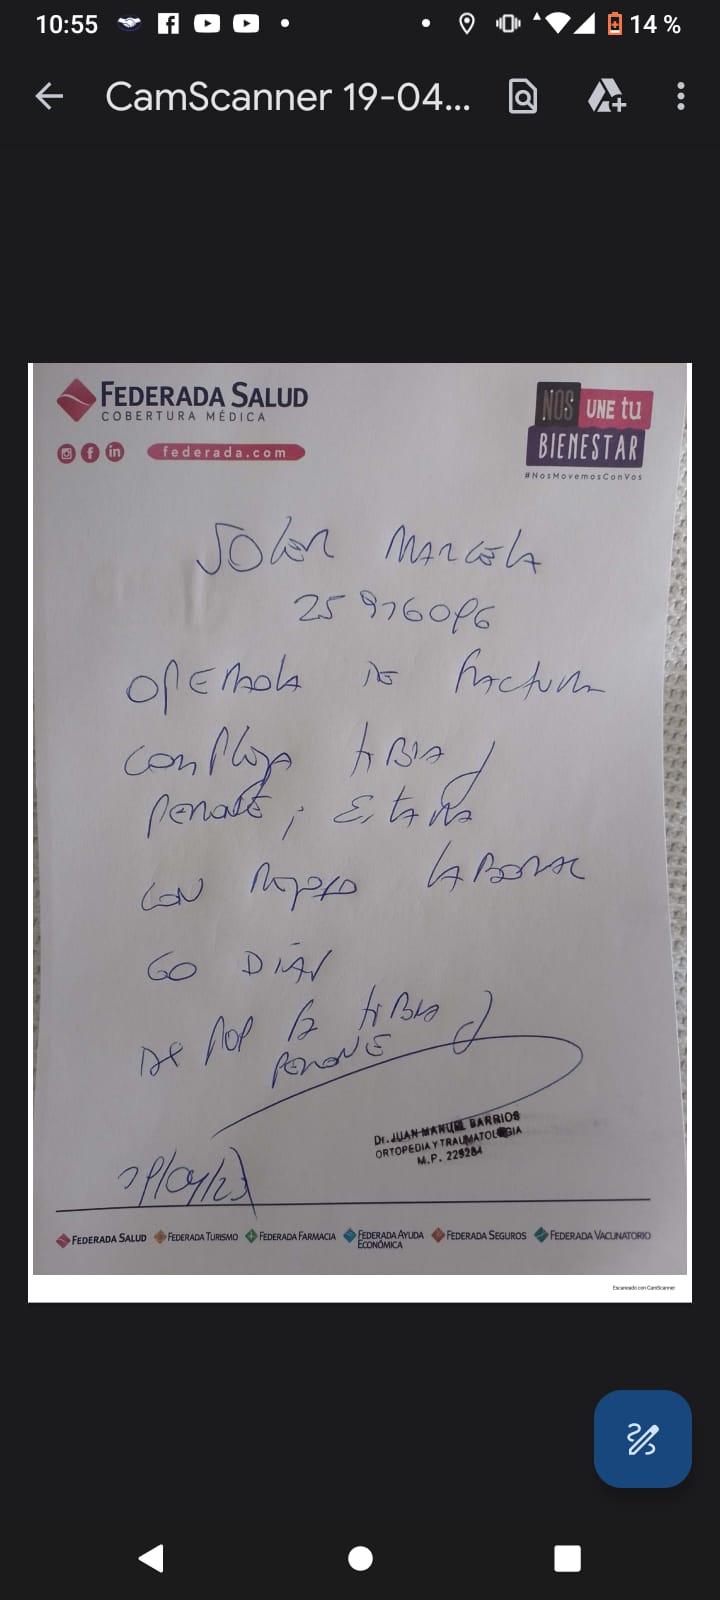 10:55
14 %
CamScanner 19-04...
FEDERADA SALUD
COBERTURA MÉDICA
federada.com
NOS UNE tu
BIENESTAR
#NosMovemosConVos
SOLER MARCELA
25976096
OPERADA DE FRACTURA
COMPLEJA TIBIA Y
PERONÉ; ESTARA
CON REPOSO LABORAL
60 DIAS
DX POP TIBIA Y
PERONE
Dr. JUAN MANUEL BARRIOS
ORTOPEDIA Y TRAUMATOLOGIA
M.P. 229284
/04/23
FEDERADA SALUD FEDERADA TURISMO FEDERADA FARMACIA FEDERADA AYUDA ECONÓMICA FEDERADA SEGUROS FEDERADA VACUNATORIO
Escaneado con CamScanner